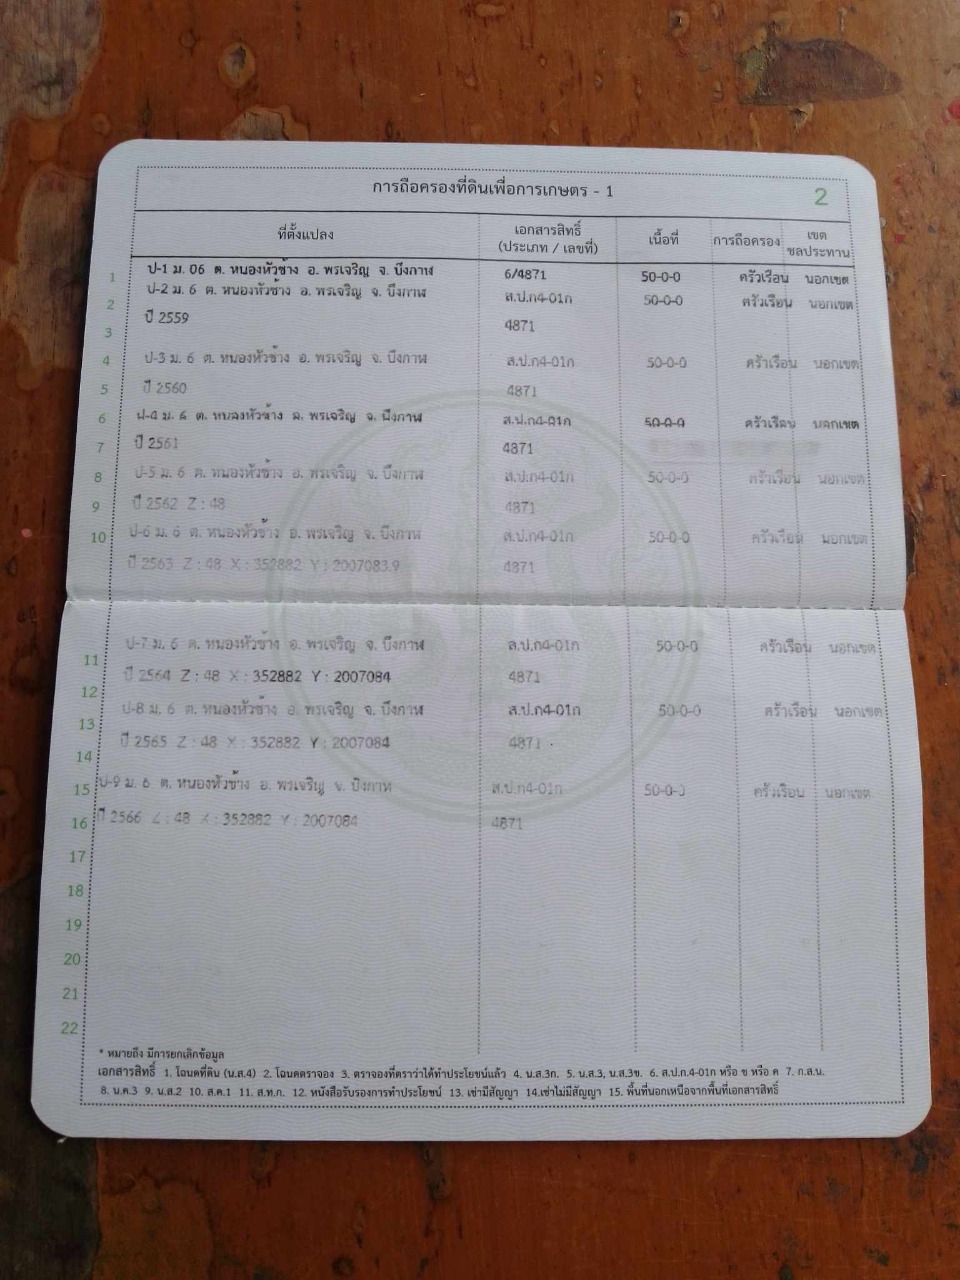 การถือครองที่ดินเพื่อการเกษตร - 1
2
ที่ตั้งแปลง เอกสารสิทธิ์ (ประเภท / เลขที่) เนื้อที่ การถือครอง เขตชลประทาน
1 ป-1 ม. 06 ต. หนองหัวช้าง อ. พรเจริญ จ. บึงกาฬ 6/4871 50-0-0 ครัวเรือน นอกเขต
2 ป-2 ม. 6 ต. หนองหัวช้าง อ. พรเจริญ จ. บึงกาฬ ส.ป.ก4-01ก 50-0-0 ครัวเรือน นอกเขต
3 ปี 2559 4871
4 ป-3 ม. 6 ต. หนองหัวช้าง อ. พรเจริญ จ. บึงกาฬ ส.ป.ก4-01ก 50-0-0 ครัวเรือน นอกเขต
5 ปี 2560 4871
6 ป-4 ม. 6 ต. หนองหัวช้าง อ. พรเจริญ จ. บึงกาฬ ส.ป.ก4-01ก 50-0-0 ครัวเรือน นอกเขต
7 ปี 2561 4871
8 ป-5 ม. 6 ต. หนองหัวช้าง อ. พรเจริญ จ. บึงกาฬ ส.ป.ก4-01ก 50-0-0 ครัวเรือน นอกเขต
9 ปี 2562 Z : 48 4871
10 ป-6 ม. 6 ต. หนองหัวช้าง อ. พรเจริญ จ. บึงกาฬ ส.ป.ก4-01ก 50-0-0 ครัวเรือน นอกเขต
ปี 2563 Z : 48 X : 352882 Y : 2007083.9 4871
11 ป-7 ม. 6 ต. หนองหัวช้าง อ. พรเจริญ จ. บึงกาฬ ส.ป.ก4-01ก 50-0-0 ครัวเรือน นอกเขต
12 ปี 2564 Z : 48 X : 352882 Y : 2007084 4871
13 ป-8 ม. 6 ต. หนองหัวช้าง อ. พรเจริญ จ. บึงกาฬ ส.ป.ก4-01ก 50-0-0 ครัวเรือน นอกเขต
14 ปี 2565 Z : 48 X : 352882 Y : 2007084 4871
15 ป-9 ม. 6 ต. หนองหัวช้าง อ. พรเจริญ จ. บึงกาฬ ส.ป.ก4-01ก 50-0-0 ครัวเรือน นอกเขต
16 ปี 2566 Z : 48 X : 352882 Y : 2007084 4871
17
18
19
20
21
22
* หมายถึง มีการยกเลิกข้อมูล
เอกสารสิทธิ์ 1. โฉนดที่ดิน (น.ส.4) 2. โฉนดตราจอง 3. ตราจองที่ตราว่าได้ทำประโยชน์แล้ว 4. น.ส.3ก. 5. น.ส.3, น.ส.3ข. 6. ส.ป.ก.4-01ก หรือ ข หรือ ค 7. ก.ส.น.
8. น.ค.3 9. น.ส.2 10. ส.ค.1 11. ส.ท.ก. 12. หนังสือรับรองการทำประโยชน์ 13. เช่ามีสัญญา 14.เช่าไม่มีสัญญา 15. พื้นที่นอกเหนือจากพื้นที่เอกสารสิทธิ์